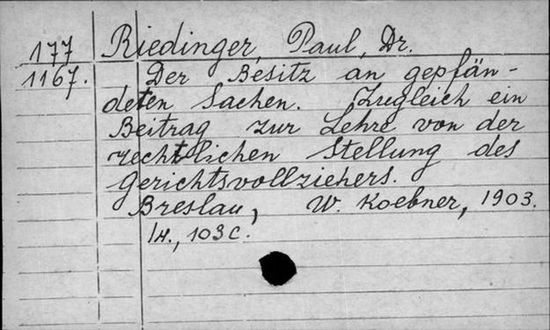 177 Riedinger, Paul, Dr.
1167. Der Besitz an gepfän-
deten Sachen. Zugleich ein
Beitrag zur Lehre von der
rechtlichen Stellung des
Gerichtsvollziehers.
Breslau, W. Koebner, 1903.
103 C.